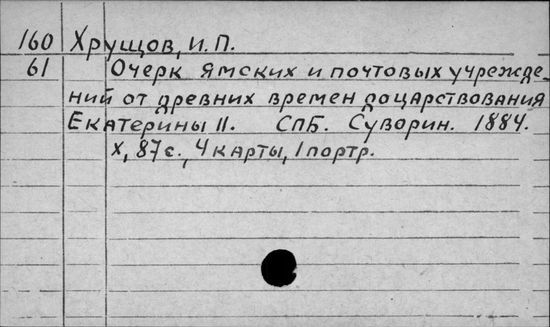 160 Хрущов, И. П.
61 Очерк ямских и почтовых учрежде-
ний от древних времен до царствования
Екатерины II. СПБ. Суворин. 1884.
X, 87с., 4 карты, 1 портр.